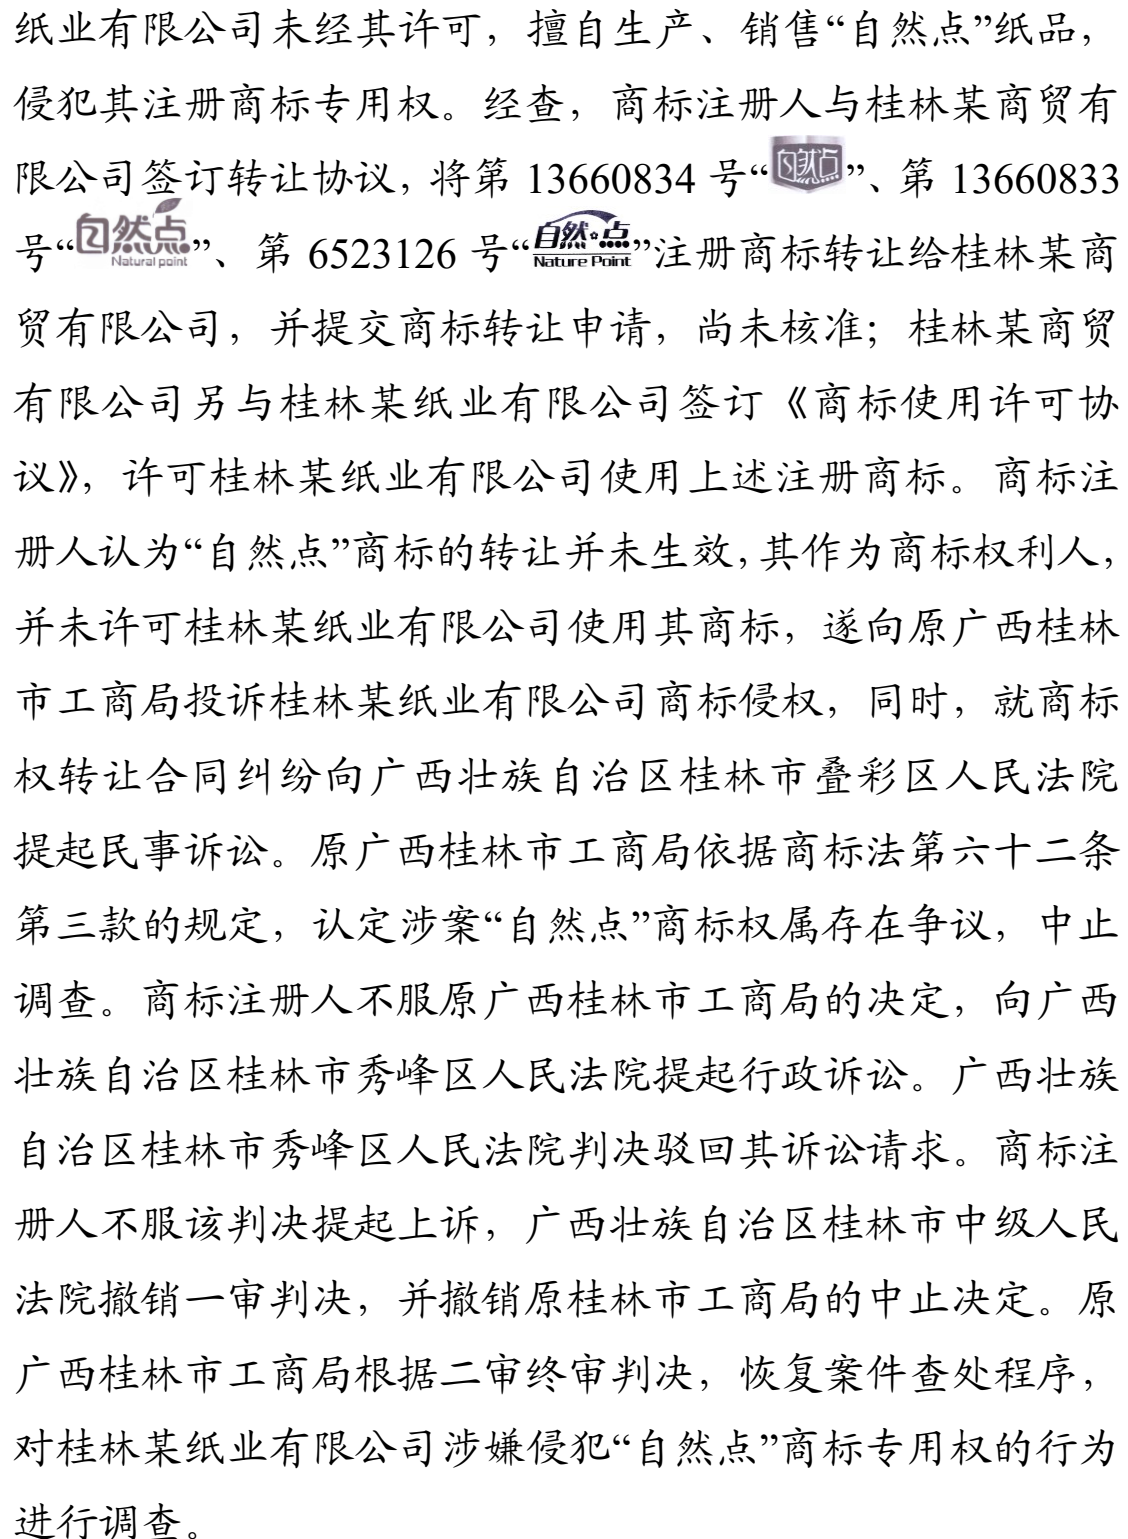 纸业有限公司未经其许可，擅自生产、销售“自然点”纸品，
侵犯其注册商标专用权。经查，商标注册人与桂林某商贸有
限公司签订转让协议，将第 13660834 号“自然点”、第 13660833
号“自然点 Natural point”、第 6523126 号“自然点 Nature Point”注册商标转让给桂林某商
贸有限公司，并提交商标转让申请，尚未核准；桂林某商贸
有限公司另与桂林某纸业有限公司签订《商标使用许可协
议》，许可桂林某纸业有限公司使用上述注册商标。商标注
册人认为“自然点”商标的转让并未生效，其作为商标权利人，
并未许可桂林某纸业有限公司使用其商标，遂向原广西桂林
市工商局投诉桂林某纸业有限公司商标侵权，同时，就商标
权转让合同纠纷向广西壮族自治区桂林市叠彩区人民法院
提起民事诉讼。原广西桂林市工商局依据商标法第六十二条
第三款的规定，认定涉案“自然点”商标权属存在争议，中止
调查。商标注册人不服原广西桂林市工商局的决定，向广西
壮族自治区桂林市秀峰区人民法院提起行政诉讼。广西壮族
自治区桂林市秀峰区人民法院判决驳回其诉讼请求。商标注
册人不服该判决提起上诉，广西壮族自治区桂林市中级人民
法院撤销一审判决，并撤销原桂林市工商局的中止决定。原
广西桂林市工商局根据二审终审判决，恢复案件查处程序，
对桂林某纸业有限公司涉嫌侵犯“自然点”商标专用权的行为
进行调查。